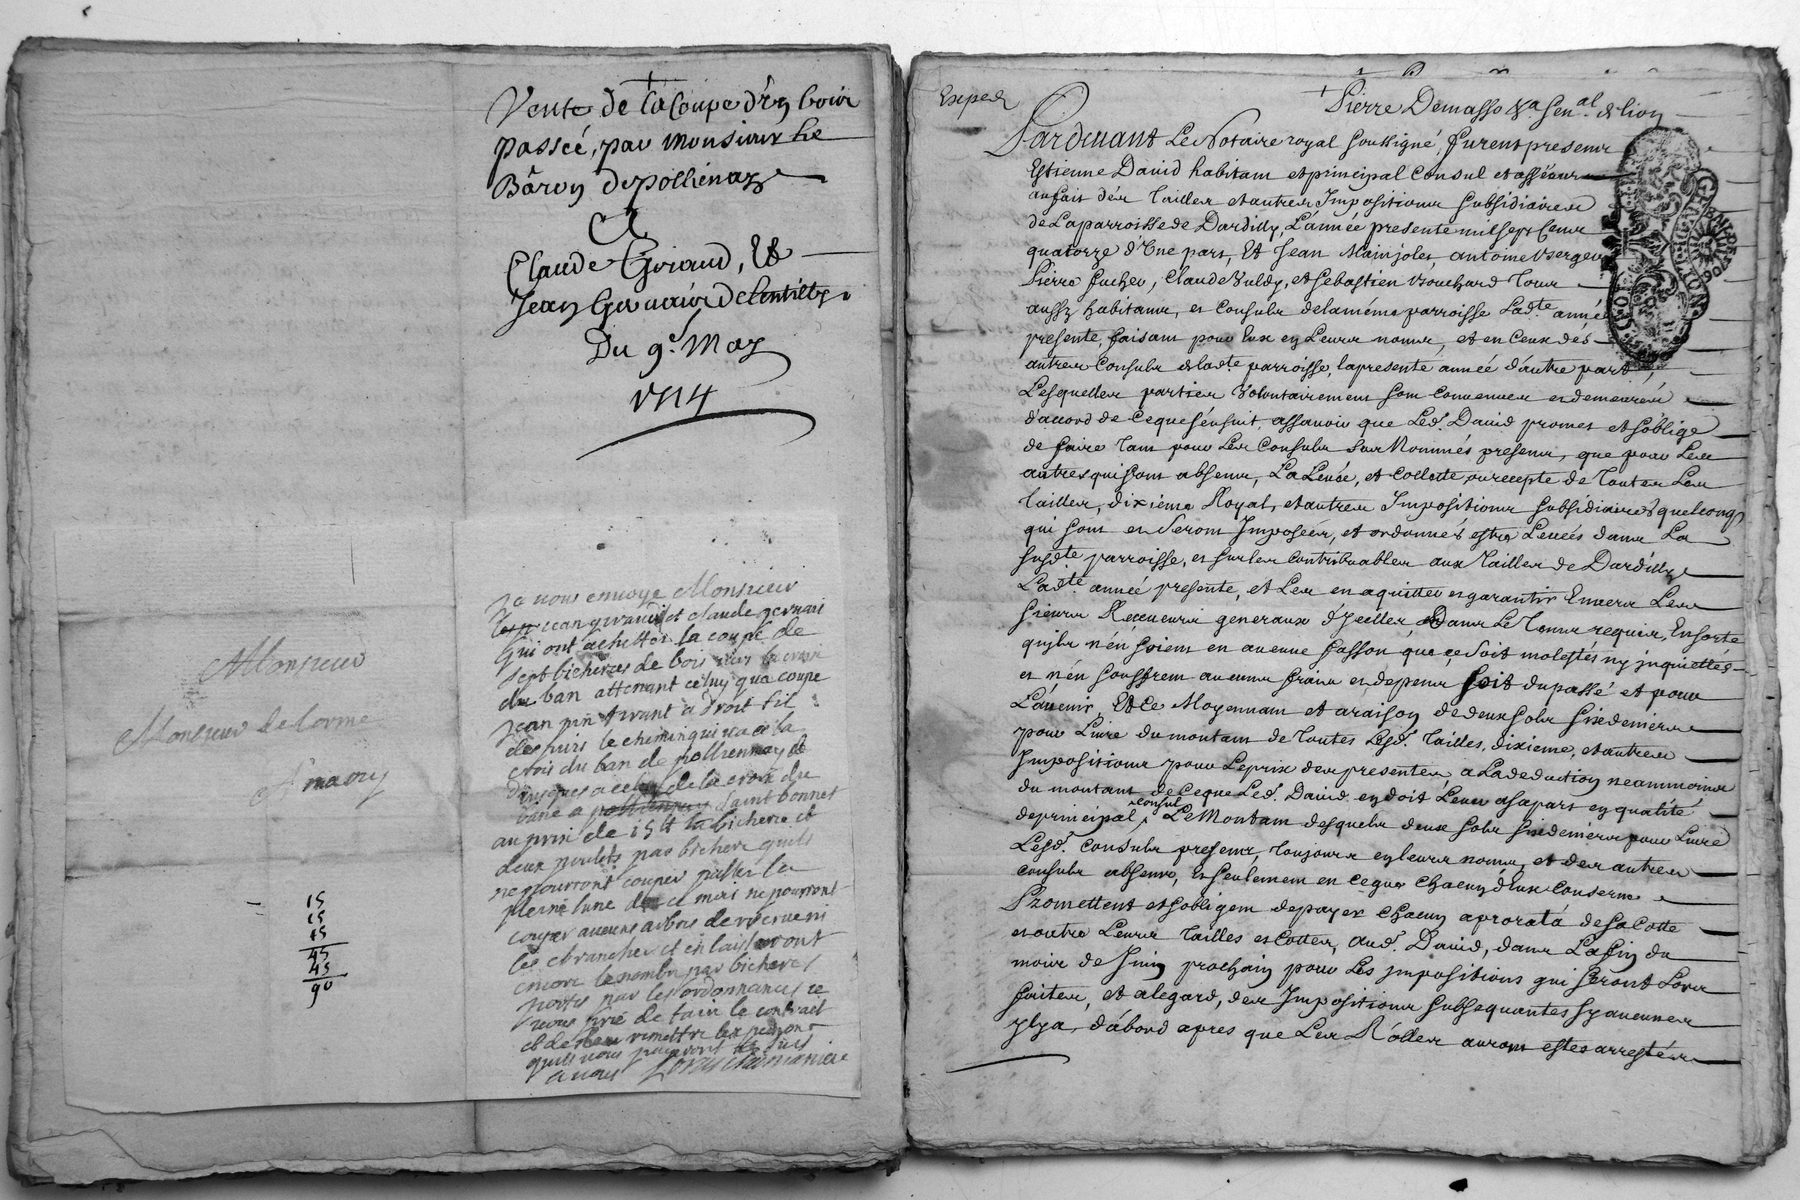 Vente de la Coupe d'un boix
passéé, par monsieur Le
Bâron de polliénay
A
Claude Giraud, Et
Jean Gervais de Lentilly.
Du 9.e May
1714
Je vous envoye Monsieur
jean giraud et claude gervais
qui ont achetté la coupe de
sept bicherees de bois vers la croix
du ban attenant celuy qua coupé
jean pin tirant a droit fil
depuis le chemin qui va a la
crois du ban de polliennay
jusques a celuy de la croix du
bane a pollienay Saint bonnet
au prix de 15 lt la bicheree et
deux poulets par bicheree quils
ne pourront couper passé la
pleine lune de ce mois ne pourront
couper aucuns arbres de reserve ni
les ebrancher et en laisseront
encore le nombre par bicheree
portés par les ordonnances je
vous prie de fair le contrait
et de leur remettre
quils vous
a vous
Monsieur
Monsieur delorme
15
15
15
45
45
90
Expedz
Pierre Demasso Va. Sen.al de lion
Pardevant Le Notaire royal soussigné, furent presens
Estienne David habitant et principal Consul et asséeur
au fait dés Tailles et autres Impositions subsidiaires
de La parroisse de Dardilly, L'année presente mil sept Cens
quatorze d'Une part, Et Jean Mainjoles, antoine Verger
Pierre fucher, Claude Buldy, et Sebastien Bouchard Tous
aussy habitans, et Consuls de la méme parroisse Lad.te année
presente, faisant pour Eux en Leurs noms, et en Ceux dés
autres Consuls de lad.te parroisse, la presente année d'autre part,
Lesquelles parties Volontairement sont convenues et demeurées
d'accord de Ceque s'énsuit, assavoir que Led. David promet et s'oblige
de faire tant pour Les Consuls sus Nommés presens, que pour Les
autres qui sont absens, La Levée, et Collette ou recepte de Toutes Les
Tailles, dixiéme Royal, et autres Impositions subsidiaires quelconqs
qui sont et Seront Imposéés, et ordonnés estre Levéés dans La
susd.te parroisse, et sur les Contribuables aux Tailles de Dardilly
Lad.te année presente, et Les en aquitter et garantir Envers Les
sieurs Receveurs generaux d'Jcelles, Dans Le Tems requis, Ensorte
quils n'én soient en aucune fasson que ce soit molestés ny jnquiettés
et n'én souffrent aucuns fraix et depens soit du passé et pour
L'avenir, Et Ce Moyennant et a raison de deux sols six deniers
pour Livre du montant de Toutes Lesd. Tailles, dixieme, et autres
Impositions pour Le prix des presentes, a La deduction neammoins
du montant de Ceque Led. David en doit Lever a sa part en qualité
de principal consul, Le Montant desquels deux sols six deniers pour Livre
Lesd. Consuls presens, Toujours en leurs noms, et des autres
Consuls absens, Et seulement en ce que Chacun d'Eux Conserne
Promettent et sobligent de payer Chacun a proratá de sa Cotte
et outre Leurs Tailles et Cottes, aud. David, dans La fin du
mois de Juin prochain pour Les jmpositions qui Seront Lors
faites, et a légard, des Impositions subsequantes sy aucunes
ylya, d'àbord apres que Les Rólles auront estes arrestées